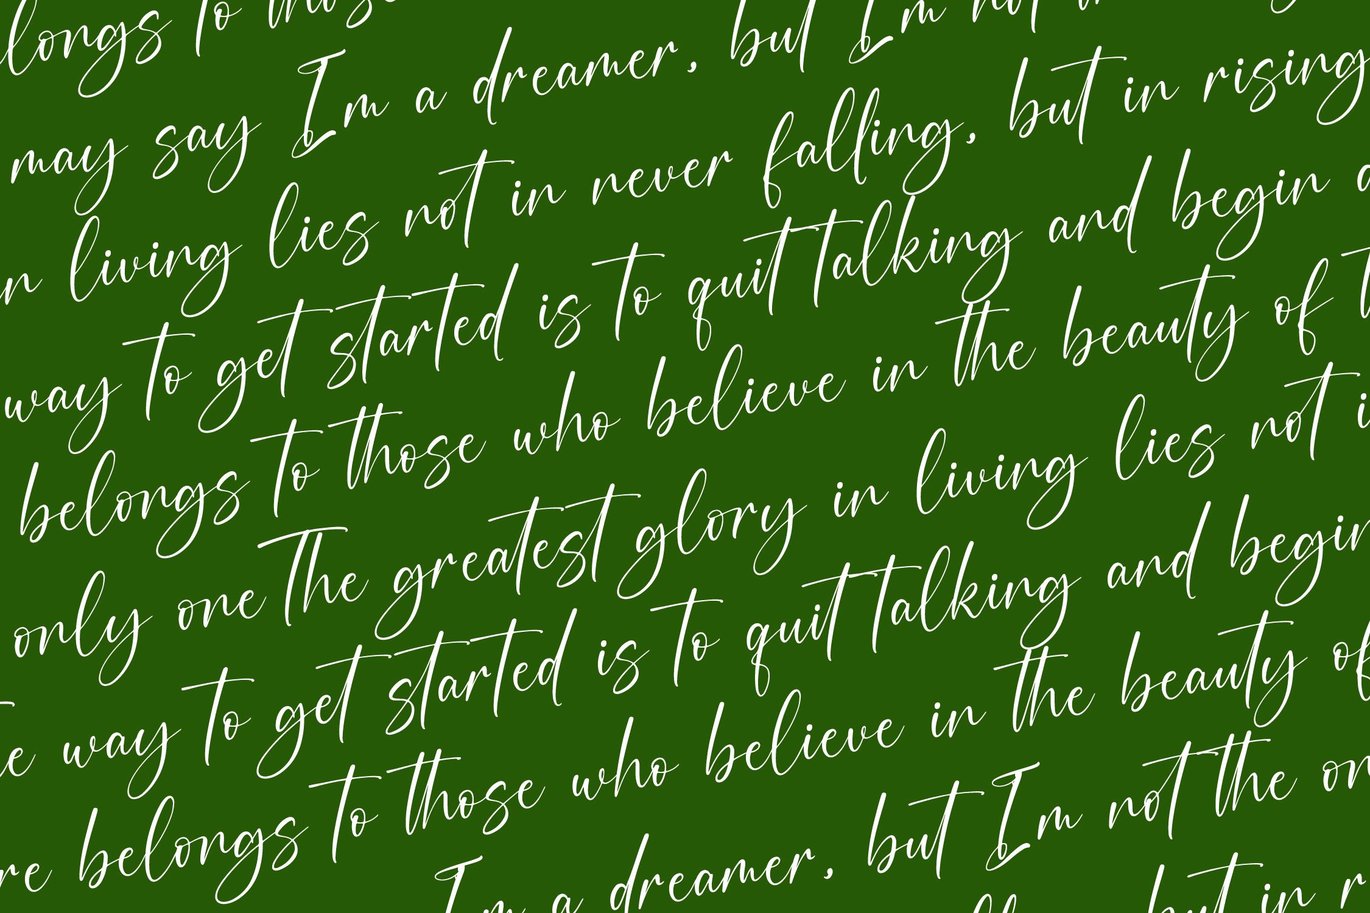 longs to those
may say Im a dreamer, but Im not
in living lies not in never falling, but in rising
way to get started is to quit talking and begin
belongs to those who believe in the beauty of
only one the greatest glory in living lies not
way to get started is to quit talking and begin
belongs to those who believe in the beauty of
Im a dreamer, but Im not the on
but in r